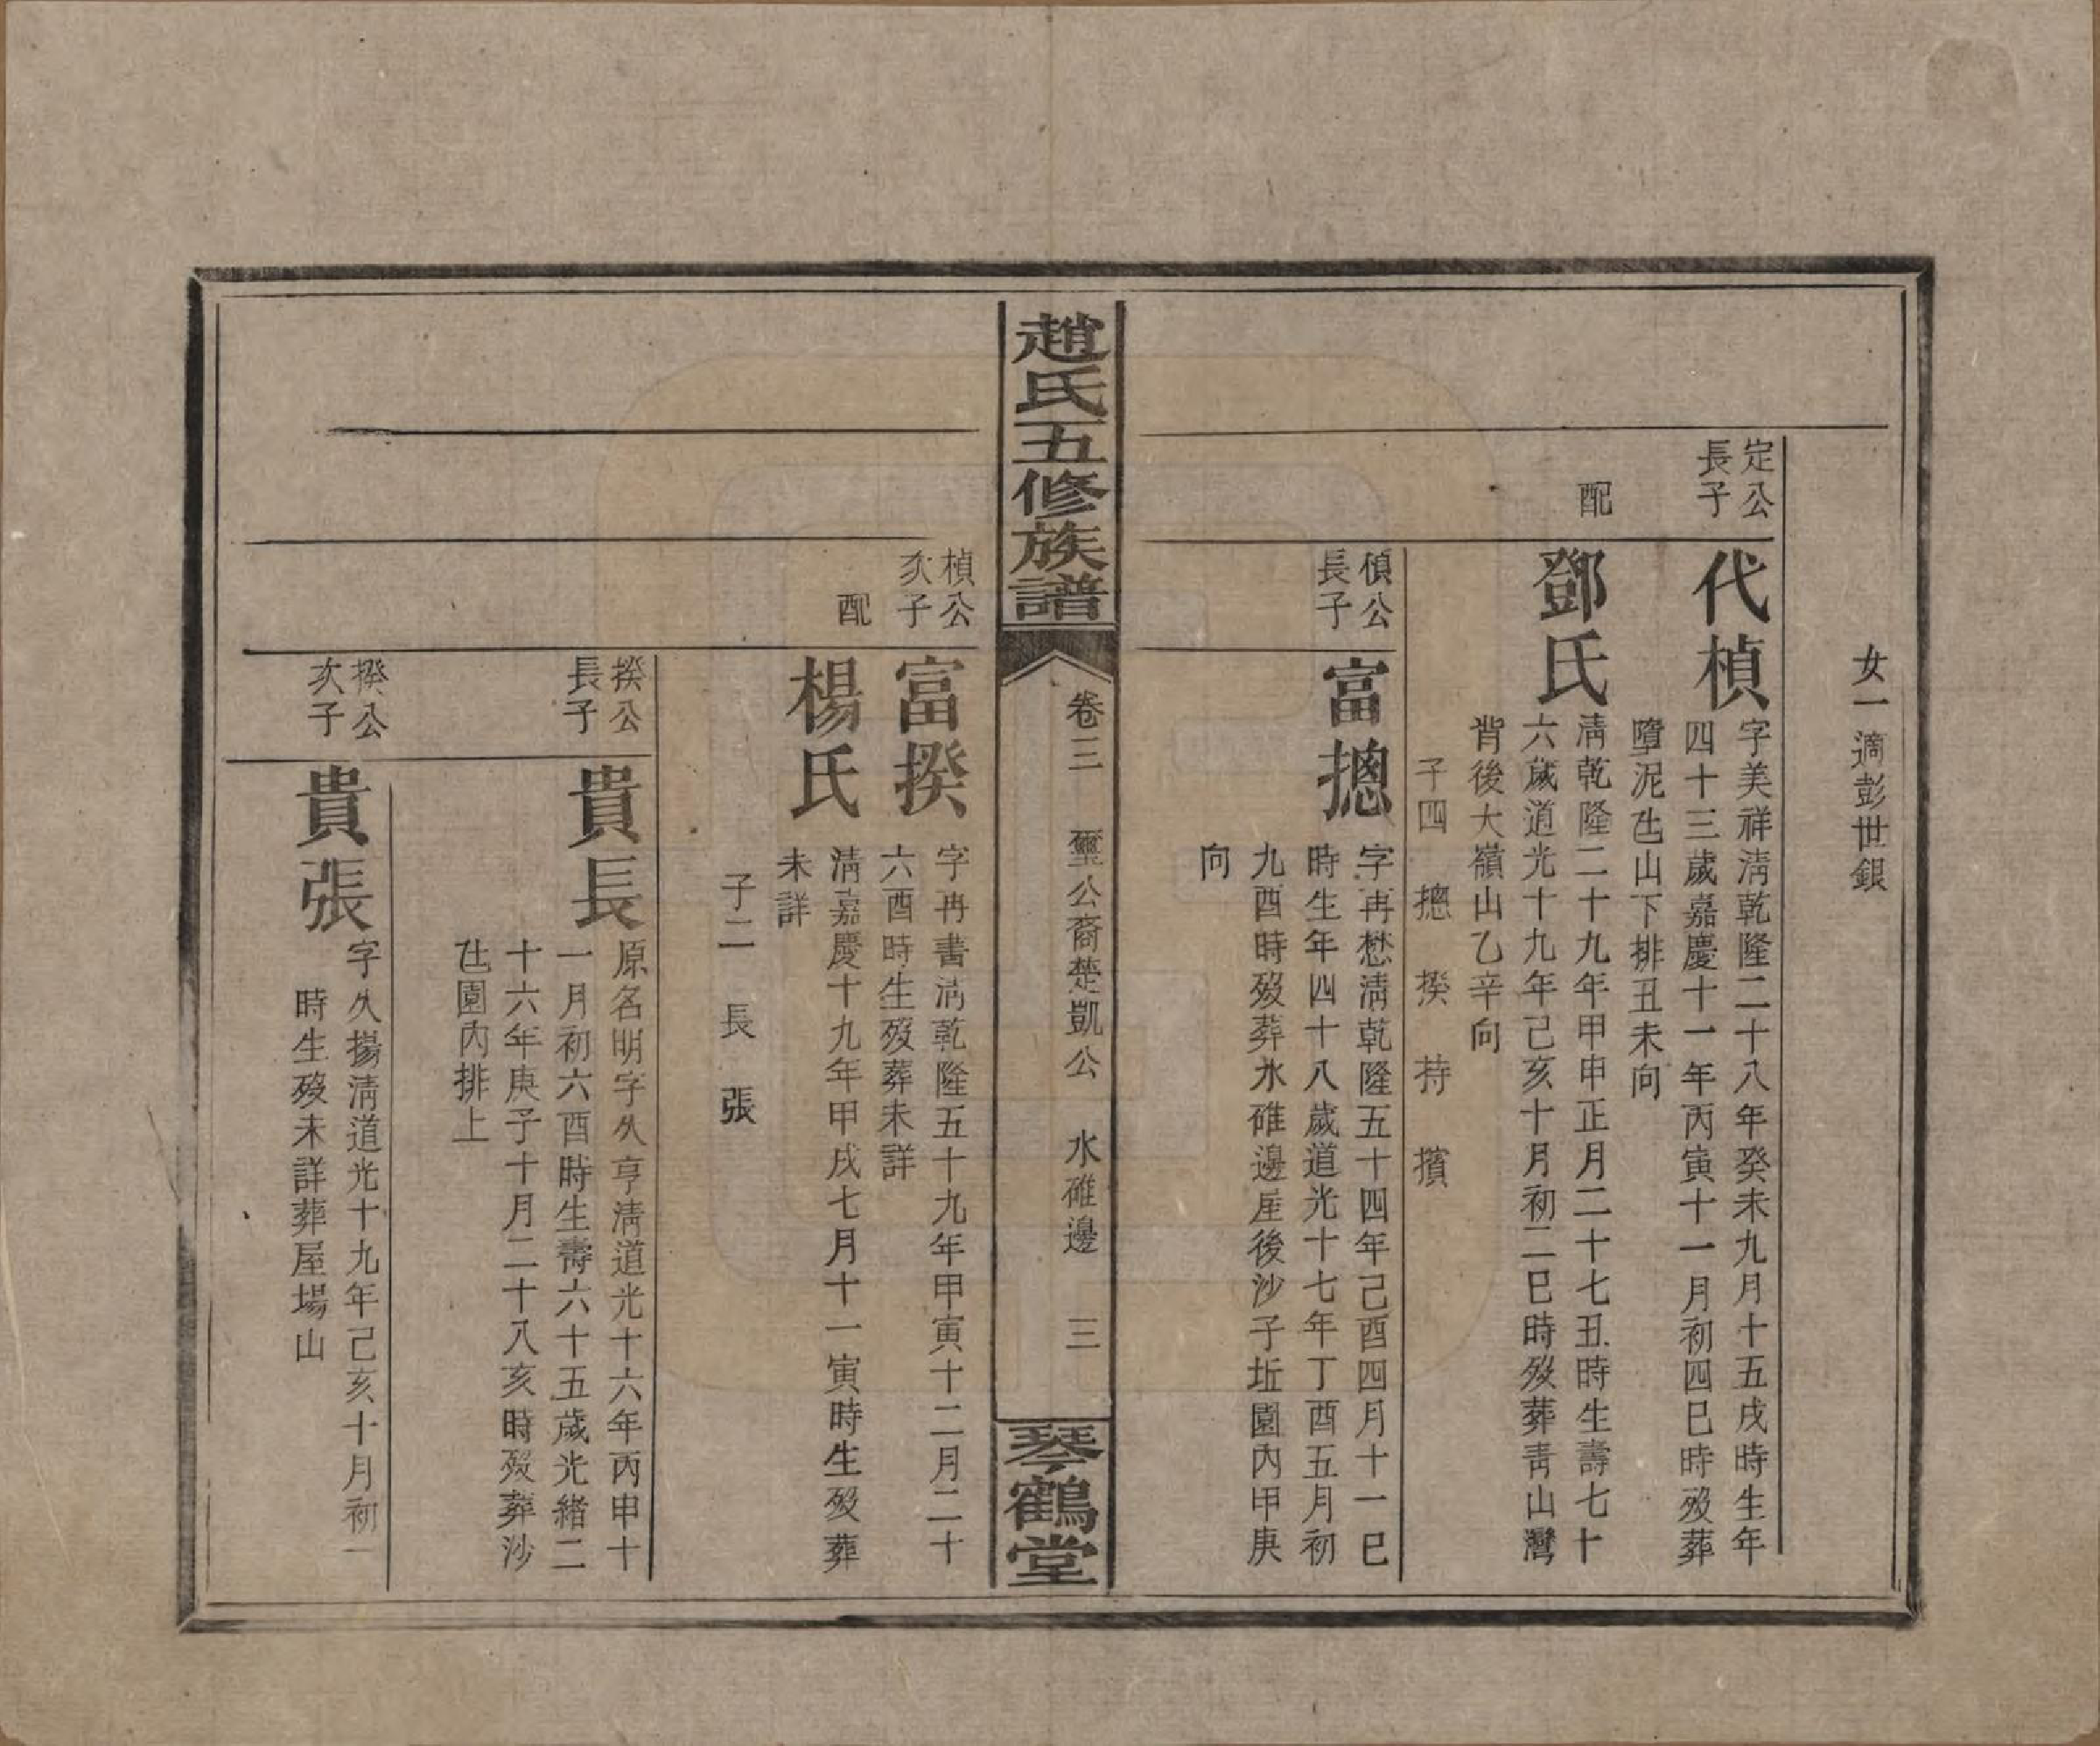 女一適彭世銀
定公
長子
代楨
字美祥淸乾隆二十八年癸未九月十五戌時生年
四十三歲嘉慶十一年丙寅十一月初四巳時歿葬
墮泥𠀍山下排丑未向
配
鄧氏
淸乾隆二十九年甲申正月二十七丑時生壽七十
六歲道光十九年己亥十月初二巳時歿葬靑山灣
背後大嶺山乙辛向
子四 摠 揆 持 擯
楨公
長子
富摠
字再懋淸乾隆五十四年己酉四月十一巳
時生年四十八歲道光十七年丁酉五月初
九酉時歿葬水碓邊屋後沙子坵園內甲庚
向
趙氏五修族譜
卷三 璽公裔楚凱公 水碓邊 三
琴鶴堂
楨公
次子
富揆
字再書淸乾隆五十九年甲寅十二月二十
六酉時生歿葬未詳
配
楊氏
淸嘉慶十九年甲戌七月十一寅時生歿葬
未詳
子二 長 張
揆公
長子
貴長
原名明字久亨淸道光十六年丙申十
一月初六酉時生壽六十五歲光緒二
十六年庚子十月二十八亥時歿葬沙
𠀍園內排上
揆公
次子
貴張
字久揚淸道光十九年己亥十月初一
時生歿未詳葬屋場山